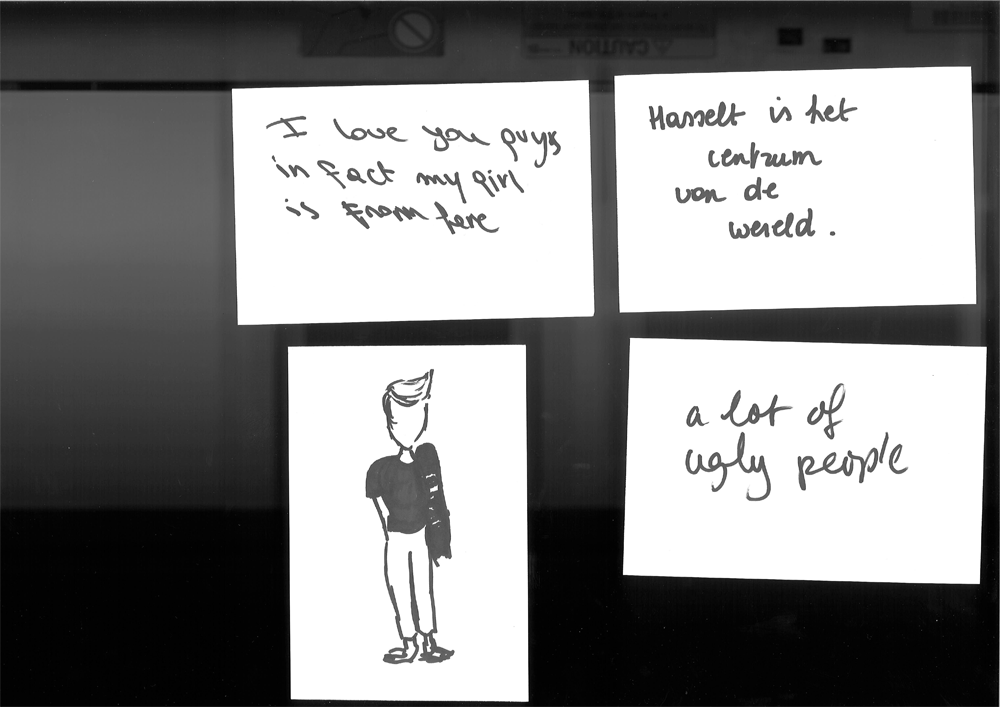 I love you guys
in fact my girl
is from here
Hasselt is het
centrum
van de
wereld.
a lot of
ugly people
CAUTION